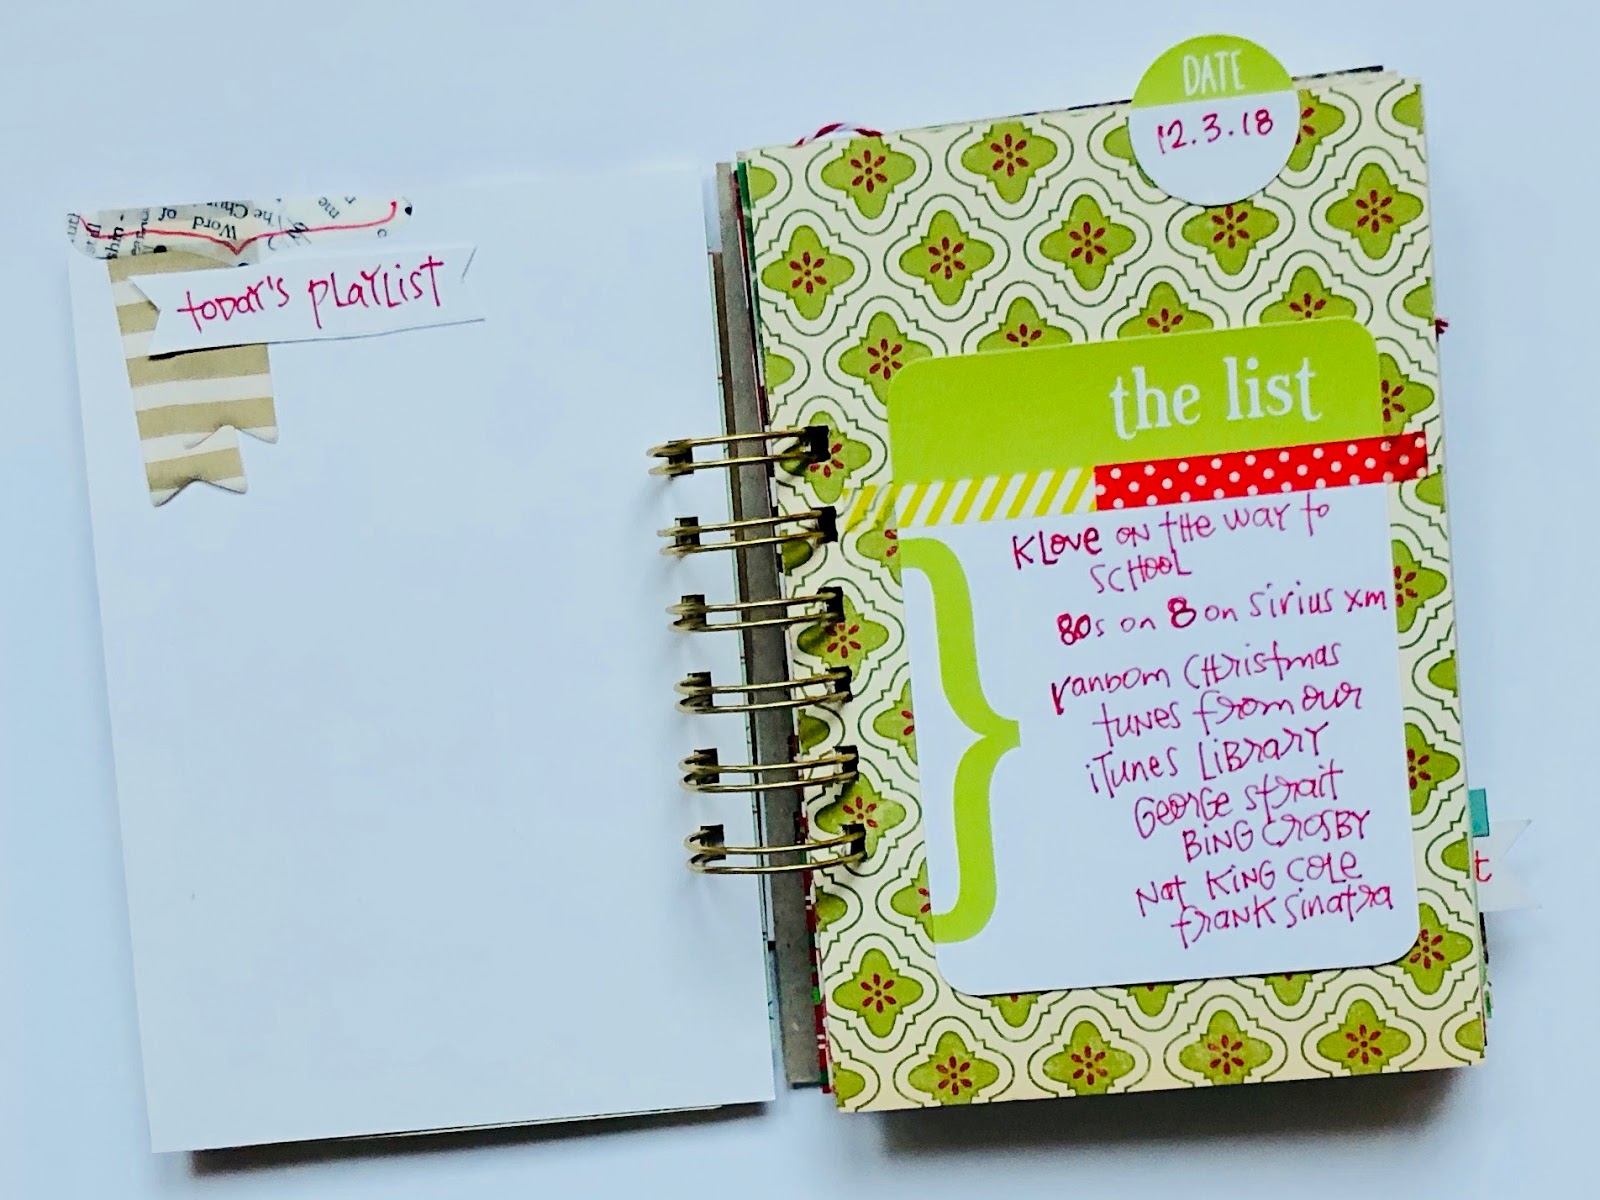 me
he Chu
Word
of
today's playlist
DATE
12.3.18
the list
KLove on the way to
school
80s on 8 on sirius xm
random christmas
tunes from our
iTunes Library
George Strait
Bing Crosby
Nat King Cole
Frank Sinatra
t